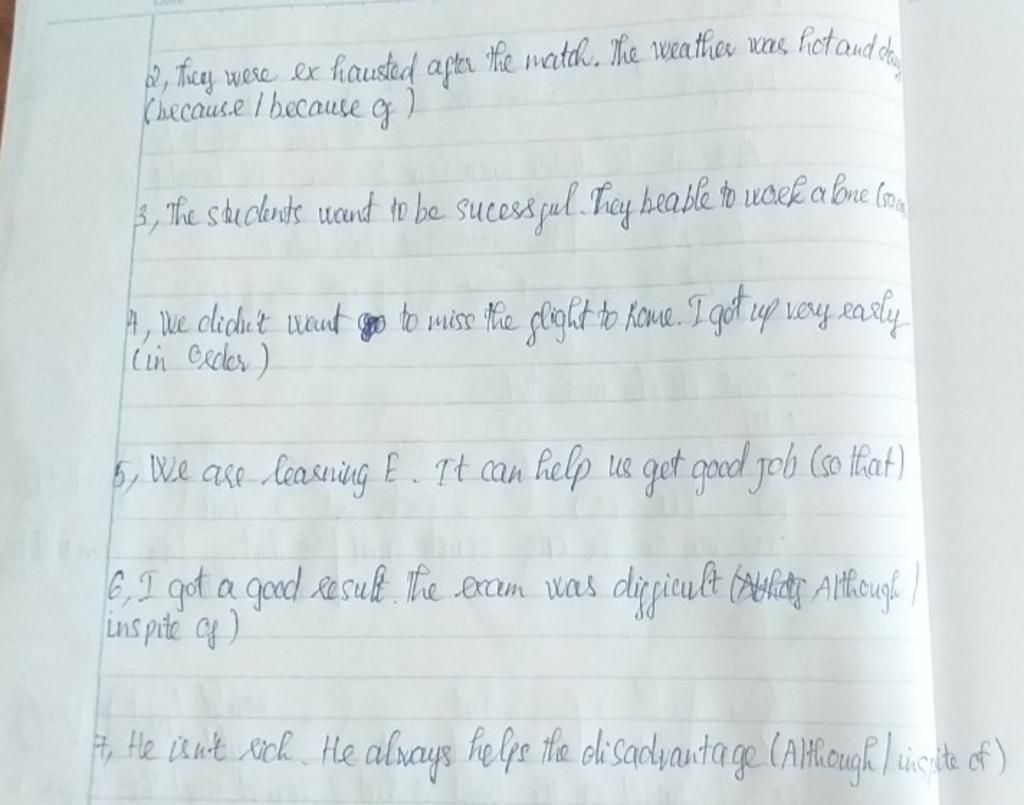 2, They were ex hausted after the match. The weather was hot and dry
(because / because of )
3, The students want to be sucessful. They beable to work alone (so as
4, We didn't want to miss the flight to home. I got up very early
(in order )
5, We are learning E. It can help us get good job (so that)
6, I got a good result. The exam was difficult ( Although /
inspite of )
7, He isn't rich. He always helps the disadvantage (Although / inspite of )